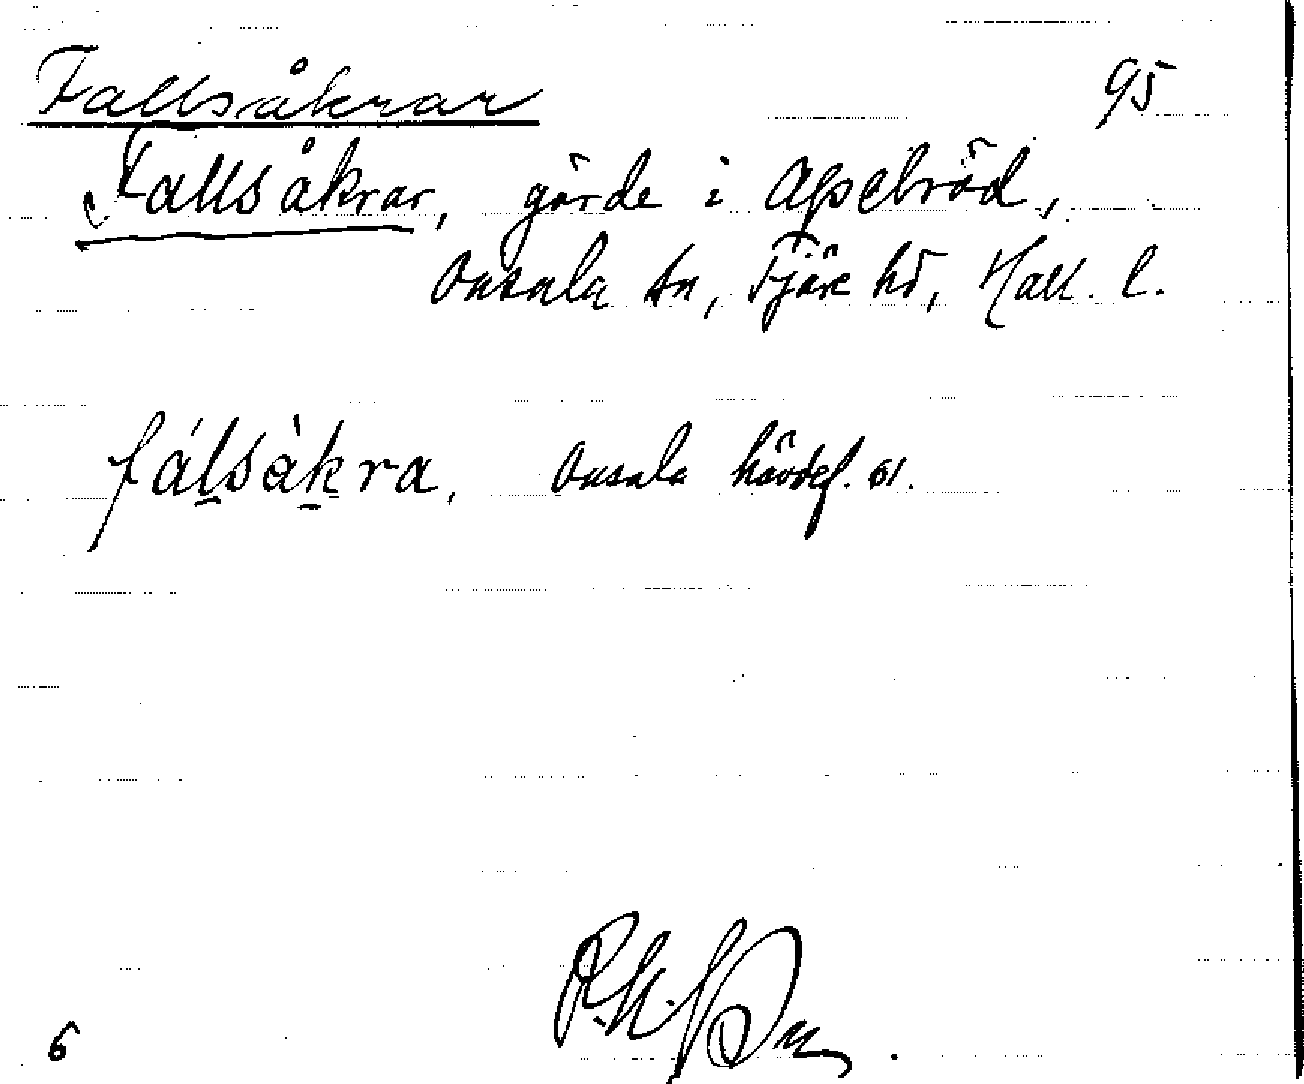 Fallsåkrar 95
Fallsåkrar, gärde i Apelröd,
Onsala sn, Fjäre hd, Hall. l.
fálsàkra, Onsala hävdef. 61.
6